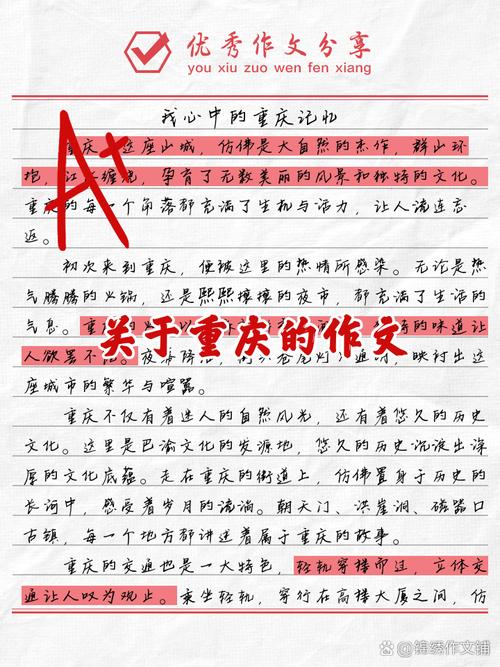 优秀作文分享
you xiu zuo wen fen xiang
我心中的重庆记忆
重庆，这座山城，仿佛是大自然的杰作，群山环
抱，江水缠绕，孕育了无数美丽的风景和独特的文化。
重庆的每一个角落都充满了生机与活力，让人流连忘
返。
A+
初次来到重庆，便被这里的热情所感染。无论是热
气腾腾的火锅，还是熙熙攘攘的夜市，都充满了生活的
气息。重
的味道让
关于重庆的作文
人欲罢不
夜幕降
通明，映衬出这
座城市的繁华与喧嚣。
重庆不仅有着迷人的自然风光，还有着悠久的历史
文化。这里是巴渝文化的发源地，悠久的历史沉淀出深
厚的文化底蕴。走在重庆的街道上，仿佛置身于历史的
长河中，感受着岁月的流淌。朝天门、洪崖洞、磁器口
古镇，每一个地方都讲述着属于重庆的故事。
重庆的交通也是一大特色，轻轨穿楼而过，立体交
通让人叹为观止。乘坐轻轨，穿行在高楼大厦之间，仿
锦绣作文铺